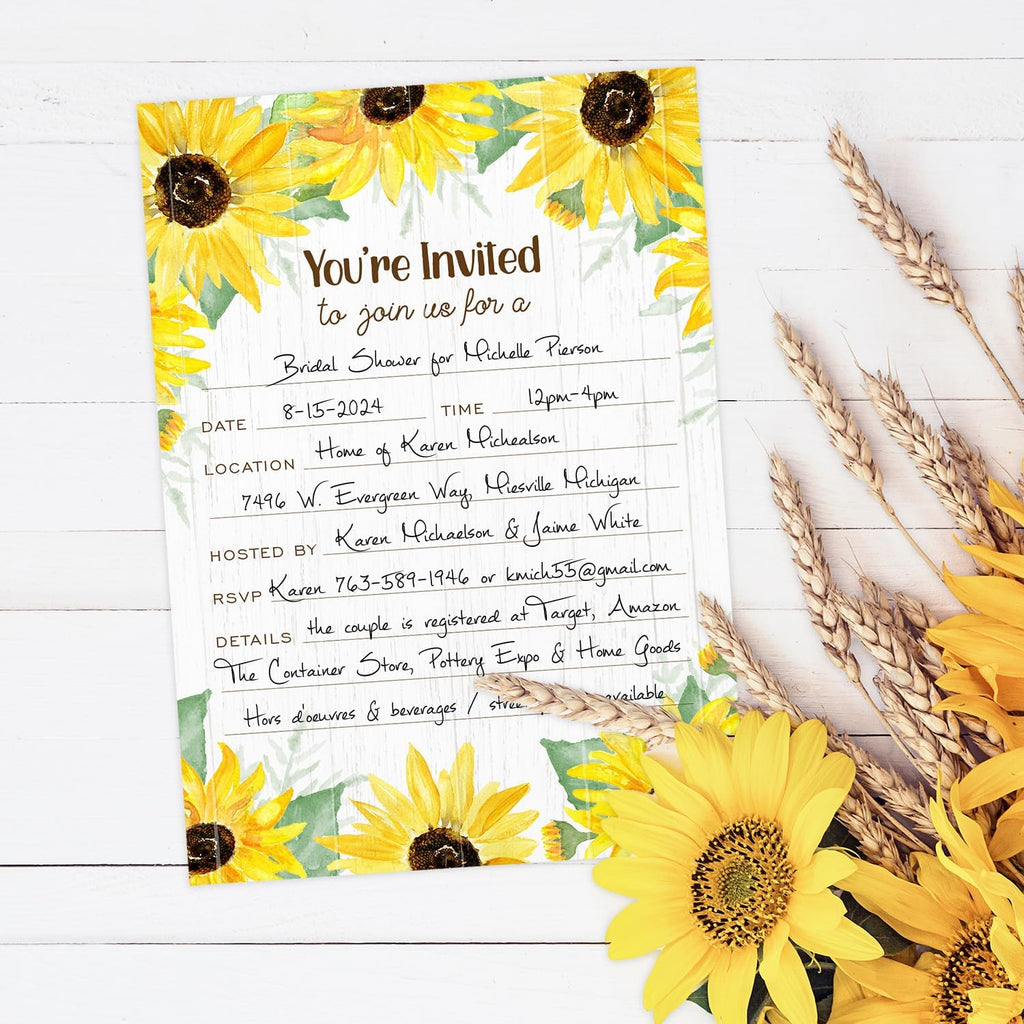 You're Invited
to join us for a
Bridal Shower for Michelle Pierson
DATE 8-15-2024 TIME 12pm-4pm
LOCATION Home of Karen Michealson
7496 W. Evergreen Way, Miesville Michigan
HOSTED BY Karen Michaelson & Jaime White
RSVP Karen 763-589-1946 or kmich55@gmail.com
DETAILS the couple is registered at Target, Amazon
The Container Store, Pottery Expo & Home Goods
Hors d'oeuvres & beverages / available